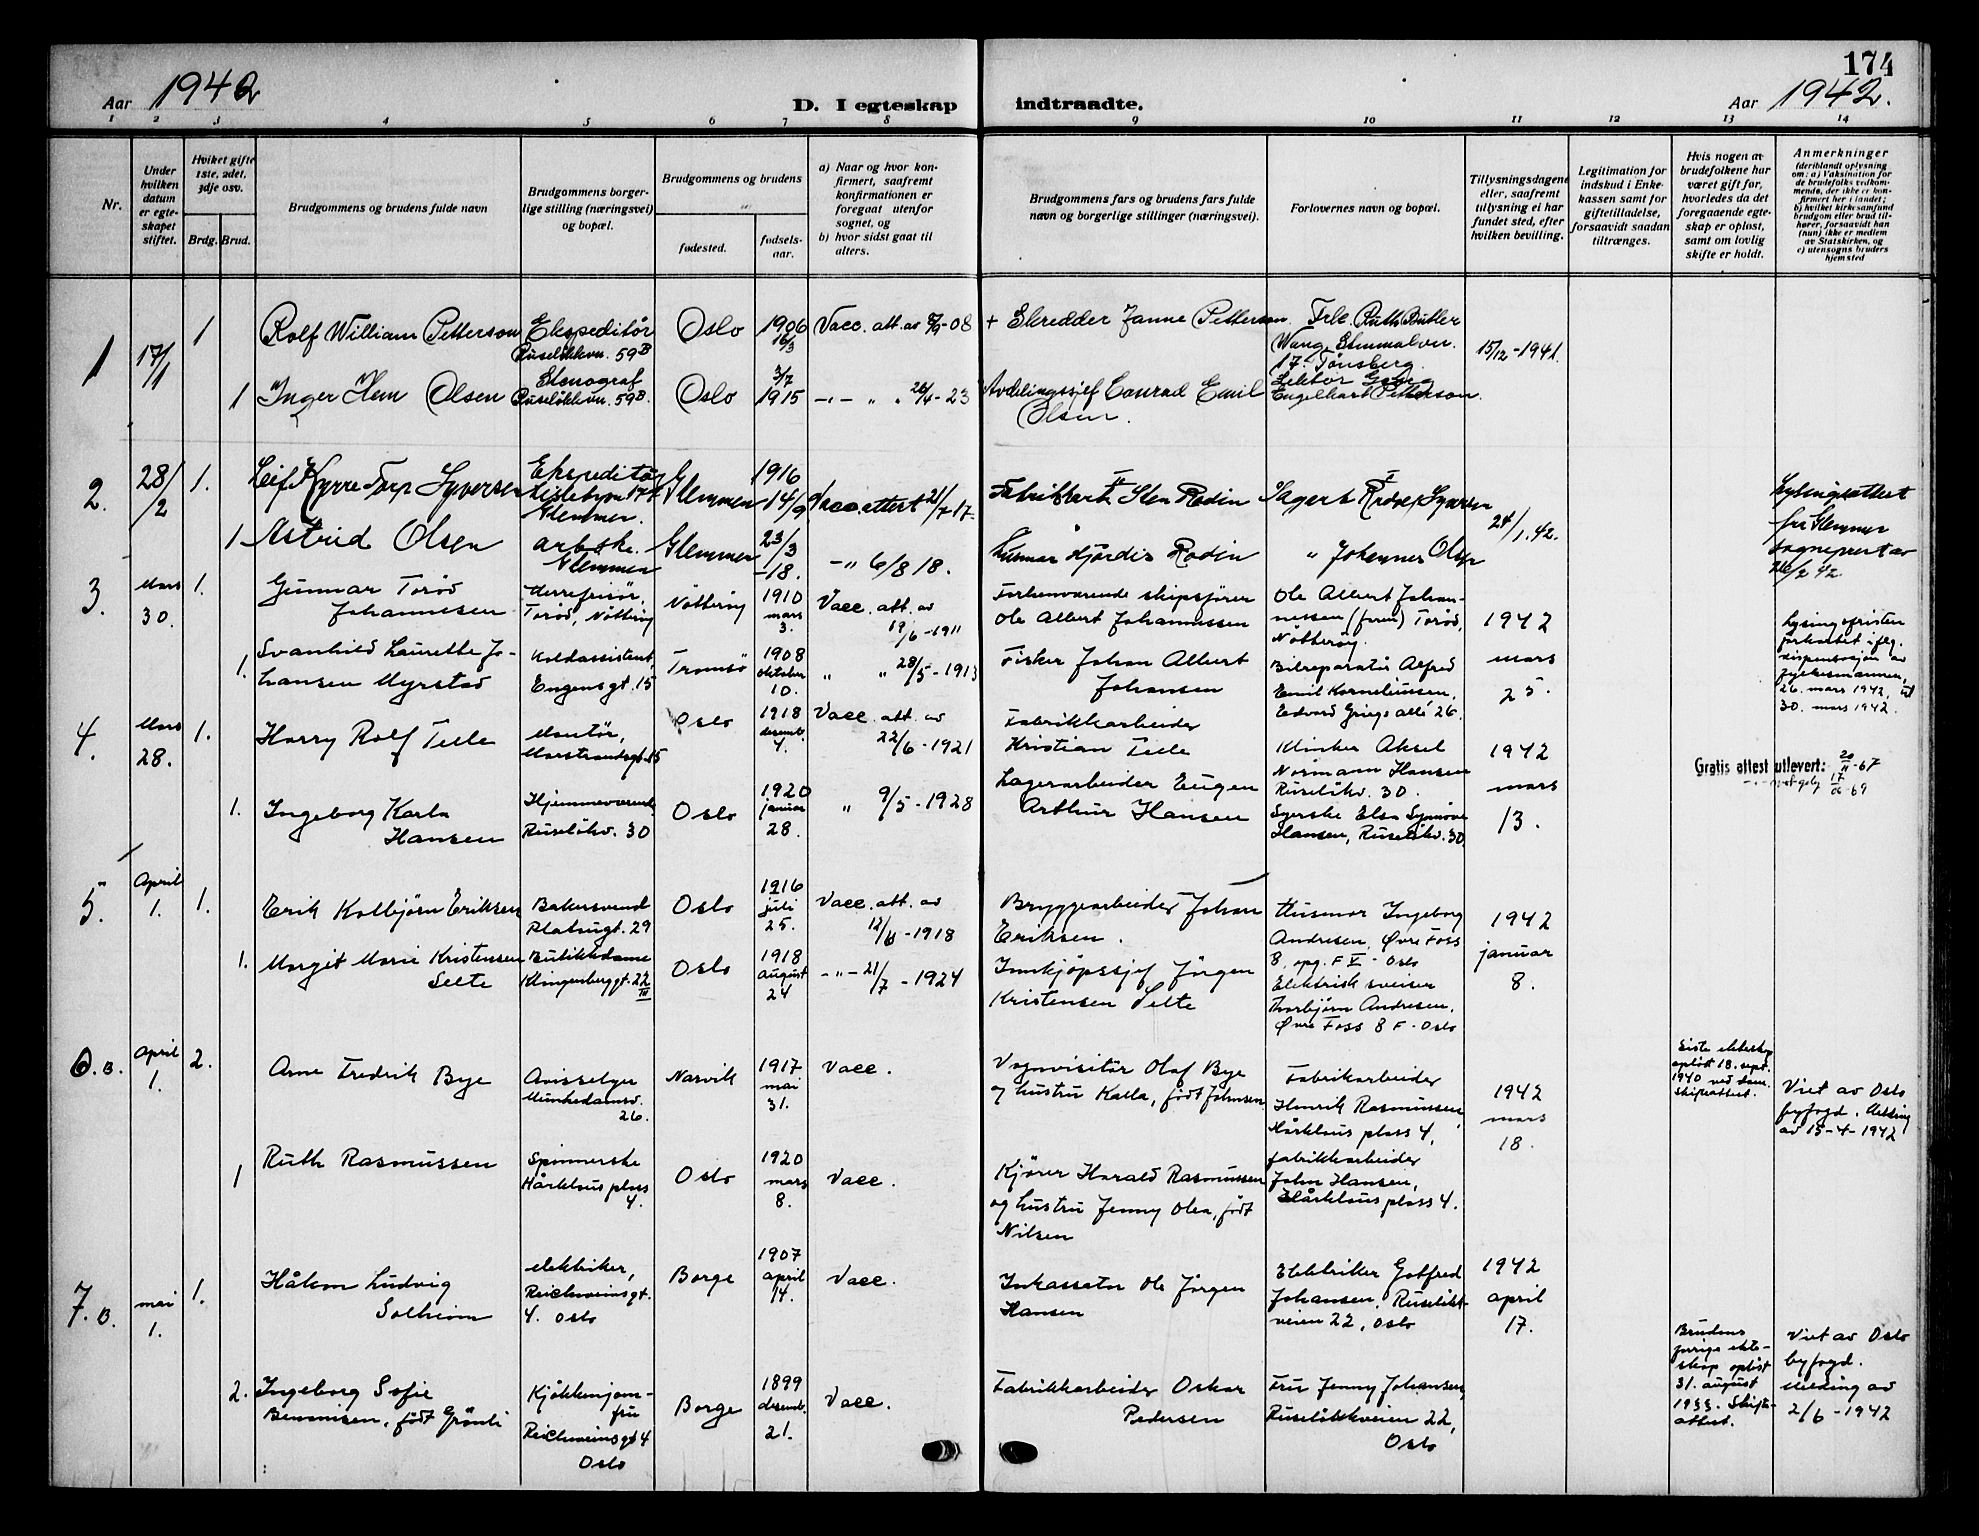 174
Aar 1942
D. I egteskap
indtraadte.
Aar 1942.
1 2 3 4 5 6 7 8 9 10 11 12 13 14
Nr.
Under hvilken datum er egteskapet stiftet.
Hvilket gifte 1ste, 2det, 3dje osv.
Brdg. Brud.
Brudgommens og brudens fulde navn
Brudgommens borgerlige stilling (næringsvei) og bopæl.
Brudgommens og brudens
fødested.
fødselsaar.
a) Naar og hvor konfirmert, saafremt konfirmationen er foregaat utenfor sognet, og
b) hvor sidst gaat til alters.
Brudgommens fars og brudens fars fulde navn og borgerlige stillinger (næringsvei).
Forlovernes navn og bopæl.
Tillysningsdagene eller, saafremt tillysning ei har fundet sted, efter hvilken bevilling.
Legitimation for indskud i Enkekassen samt for giftetilladelse, forsaavidt saadan tiltrænges.
Hvis nogen av brudefolkene har været gift før, hvorledes da det foregaaende egteskap er opløst, samt om lovlig skifte er holdt.
Anmerkninger
(deriblandt oplysning om: a) Vaksination for de brudefolks vedkommende, der ikke er konfirmert her i landet; b) hvilket kirkesamfund brudgom eller brud tilhører, forsaavidt han (hun) ikke er medlem av Statskirken, og c) utensogns bruders hjemsted
1 17/1 1 Rolf William Petterson Ekspeditør Ruseløkkvn. 59B Oslo 1906 16/3 Vacc. att. av -08 + Skredder Janne Petterson Frk. Ruth Butler Wang, 17. Tønsberg. 15/12-1941.
1 Inger Hem Olsen Stenograf Ruseløkkvn. 59B. Oslo 3/7 1915 26/4-23 Avdelingssjef Conrad Emil Olsen. Lektor Georg Engelhart Petterson.
2. 28/2 1. Leif Kyrre Torp Syversen Ekspeditør Glemmen. Glemmen 1916 14/9 Vacc. attest 21/7 17. 24/1.42. Lysingsattest fra Glemmen sogneprest av 26/2 42.
1 Astrid Olsen arbske. Glemmen Glemmen 23/3 -18. 6/8 18. Hjørdis Rodin " Johannes Olsen
3. Mars 30. 1. Gunnar Torød Johannesen Herrefrisør, Torød, Nøtterøy Nøtterøy 1910 mars 3. Vacc. att. av 19/6-1911 Forhenværende skipsfører Ole Albert Johannessen Ole Albert Johannessen (foran) Torød, Nøtterøy. 1942 mars 25. Lysingsfristen forkortet ifølg. dispensasjon av fylkesmannen, 26. mars 1942, til 30. mars 1942.
1. Svanhild Laurette Johansen Myrstad Koldassistent, Engensgt. 15 Tromsø 1908 oktober 10. " " 28/5-1913 Fisker Johan Albert Johansen Bilreparatør Alfred Emil Korneliussen, Edvard Griegs allé 26.
4. Mars 28. 1. Harry Rolf Teile Montør, Marstrandsgt. 15 Oslo 1918 desemb. 4. Vacc. att. av 22/6-1921 Fabrikkarbeider Kristian Teile Klinker Aksel Normann Hansen Ruseløkv. 30. 1942 mars 13. Gratis attest utlevert: 20/11-67 17/06-69
1. Ingeborg Karla Hansen Hjemmeværende Ruseløkv. 30 Oslo 1920 januar 28. " 9/5-1928 Lagerarbeider Eugen Arthur Hansen Syerske Elsa Synnøve Hansen, Ruseløkv. 30
5. April 1. 1. Erik Kolbjørn Eriksen Bakersvend Platousgt. 29 Oslo 1916 juli 25. Vacc. att. av -1918 Bryggearbeider Johan Eriksen. Husmor Ingeborg Andresen, Øvre Foss 8, opg. F V - Oslo 1942 januar 8.
1. Margit Marie Kristensen Selte Butikkdame Klingenberggt. 22 III Oslo 1918 august 24 21/7-1924 Innkjøpssjef Jørgen Kristensen Selte Elektrisk sveiser Thorbjørn Andresen, Øvre Foss 8 F - Oslo
6. B. April 1. 2. Arne Fredrik Bye Avisselger Munkedamsv. 26. Narvik 1917 mai 31. Vacc. Vognvisitør Olaf Bye og hustru Kalla, født Johnsen Fabrikarbeider Henrik Rasmussen, Hårklaus plass 4, 1942 mars 18. Siste ekteskap opløst 18. sept. 1940 ved dom. Skifteattest. Viet av Oslo byfogd. Melding av 15-4-1942
1 Ruth Rasmussen Spinnerske Hårklaus plass 4. Oslo 1920 mars 8. Vacc. Kjører Harald Rasmussen og hustru Jenny Olea, født Nilsen fabrikkarbeider John Hansen, Hårklaus plass 4.
7. B. mai 1. 1. Håkon Ludvig Solheim elektriker, Reichweinsgt. 4. Oslo Borge 1907 april 14. Vacc. Inkassator Ole Jørgen Hansen Elektriker Gotfred Johansen, Ruseløkkveien 22, Oslo 1942 april 17. Brudens forrige ekteskap opløst 31. august 1933. Skifteattest. Viet av Oslo byfogd. Melding av 2/6-1942
2. Ingeborg Sofie Bennisen, født Grønli Kjøkkenjomfru Reichweinsgt 4 Oslo Borge 1899 desemb. 21. Vacc. Fabrikkarbeider Oskar Pedersen Fru Jenny Johansen, Ruseløkkveien 22, Oslo